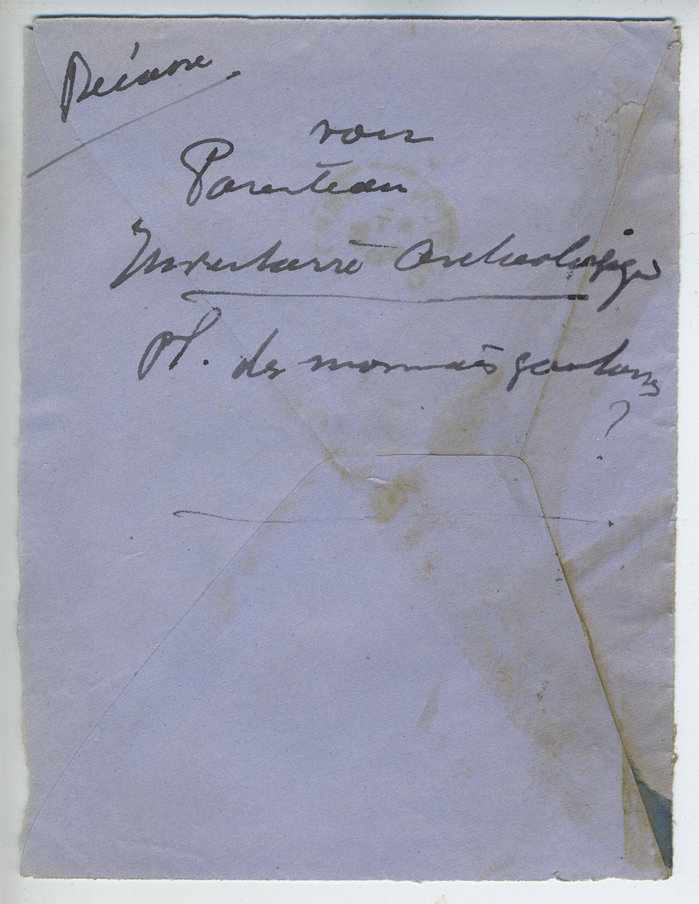 voir
Parenteau
Inventaire Archeologique
Pl. des monnaies gauloises
?